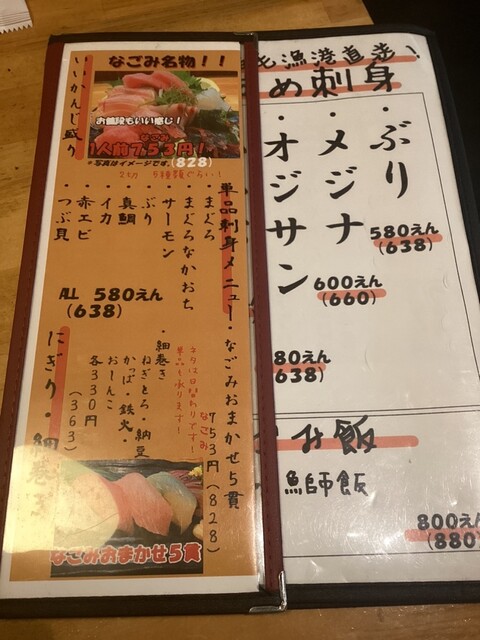 なごみ名物！！
いいかんじ盛り
お値段もいい感じ！
なごみ
1人前753円！
※写真はイメージです。(828)
2切 5種類ぐらい！
単品刺身メニュー
・まぐろ
・まぐろなかおち
・サーモン
・ぶり
・真鯛
・イカ
・赤エビ
・つぶ貝
ALL 580えん
(638)
にぎり・細巻き
・なごみおまかせ5貫
なごみ
753円(828)
ネタは日替わりです！
単品も承ります！
・細巻き
ねぎとろ・納豆
かっぱ・鉄火・
おしんこ
各330円
(363)
なごみおまかせ5貫
漁港直送！
め刺身
・ぶり
580えん
(638)
・メジナ
600えん
(660)
・オジサン
80えん
638)
み飯
漁師飯
800えん
(880)